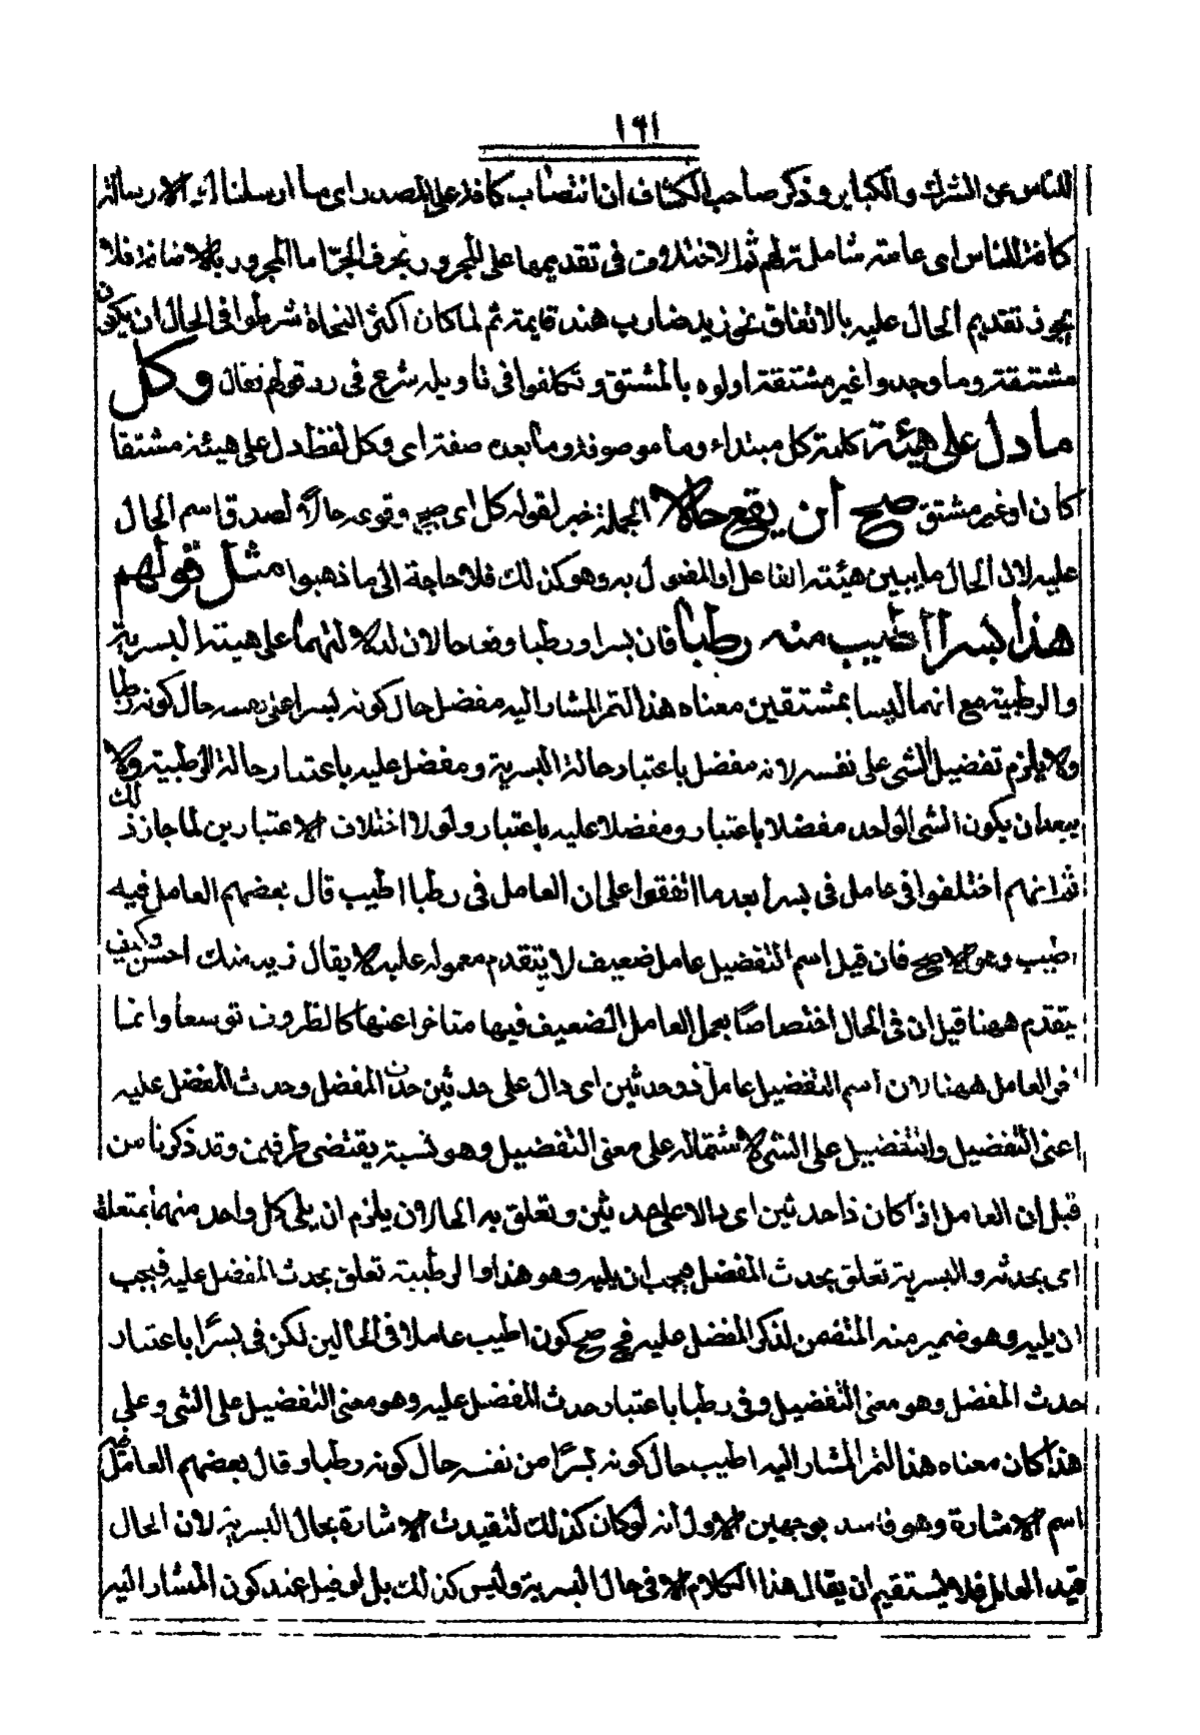 ١٦١
للناس عن الشرك والكباير وذكر صاحب الكشاف ان انتصاب كافة على المصدر اى ما ارسلناك الا رسالة
كافة للناس اى عامة شاملة لهم ثم الاختلاف فى تقديمها على المجرور بحرف الجر اما المجرور بالاضافة فلا
يجوز تقديم الحال عليه بالاتفاق نحو زيد ضارب هند قايمة ثم لما كان اكثر النحاة شرطوا فى الحال ان يكون
مشتقة وما وجدوا غير مشتقة اولوه بالمشتق وتكلفوا فى تاويله شرع فى رد قولهم فقال وكل
ما دل على هيئة كلمة كل مبتداء وما موصوفة وما بعده صفة اى وكل لفظ دل على هيئة مشتقا
كان او غير مشتق صح ان يقع حالا الجملة خبر لقوله كل اى صح وقوعه حالاً لصدق اسم الحال
عليه لان الحال ما يبين هيئة الفاعل او المفعول به وهو كذلك فلا حاجة الى ما ذهبوا مثل قولهم
هذا بسرا اطيب منه رطبا فان بسرا ورطبا وقعا حالان لدلالتهما على هيئة البسرية
والرطبية مع انهما ليسا بمشتقين معناه هذا التمر المشار اليه مفضل حال كونه بسرا على نفسه حال كونه رطبا
ولا يلزم تفضيل الشى على نفسه لانه مفضل باعتبار حالة البسرية ومفضل عليه باعتبار حالة الرطبية ولا
يبعد ان يكون الشى الواحد مفضلا باعتبار ومفضلا عليه باعتبار ولولا اختلاف الاعتبارين لما جاز ذلك
ثم انهم اختلفوا فى عامل فى بسرا بعد ما اتفقوا على ان العامل فى رطبا اطيب قال بعضهم العامل فيه
اطيب وهو الاصح فان قيل اسم التفضيل عامل ضعيف لا يتقدم معموله عليه لا يقال زيد منك احسن وكيف
يتقدم ههنا قيل ان فى الحال اختصاصًا بعمل العامل الضعيف فيها متاخرا عنها كالظروف توسعا وانما
العامل ههنا لان اسم التفضيل عامل ذو حدثين اى دال على حدثين حدث المفضل وحدث المفضل عليه
اعنى التفضيل والتفضيل على الشى لاشتماله على معنى التفضيل وهو نسبة يقتضى طرفين وقد ذكرنا من
قبل ان العامل اذا كان ذا حدثين اى دالا على حدثين وتعلق به الحالان يلزم ان يلى كل واحد منهما بمتعلقه
اى بحدثه والبسرية تعلق بحدث المفضل فيجب ان يليه وهو هذا والرطبية تعلق بحدث المفضل عليه فيجب
ان يليه وهو ضمير منه المتضمن لذكر المفضل عليه فح صح كون اطيب عاملا فى الحالين لكن فى بسرًا باعتبار
حدث المفضل وهو معنى التفضيل وفى رطبا باعتبار حدث المفضل عليه وهو معنى التفضيل على الشى وعلى
هذا كان معناه هذا التمر المشار اليه اطيب حال كونه بسرًا من نفسه حال كونه رطبا وقال بعضهم العامل
اسم الاشارة وهو فاسد بوجهين الاول انه لو كان كذلك لتقيدت الاشارة بحال البسرية لان الحال
قيد العامل فلا يستقيم ان يقال هذا الكلام الا فى حال البسرية وليس كذلك بل لو قيل عند كون المشار اليه